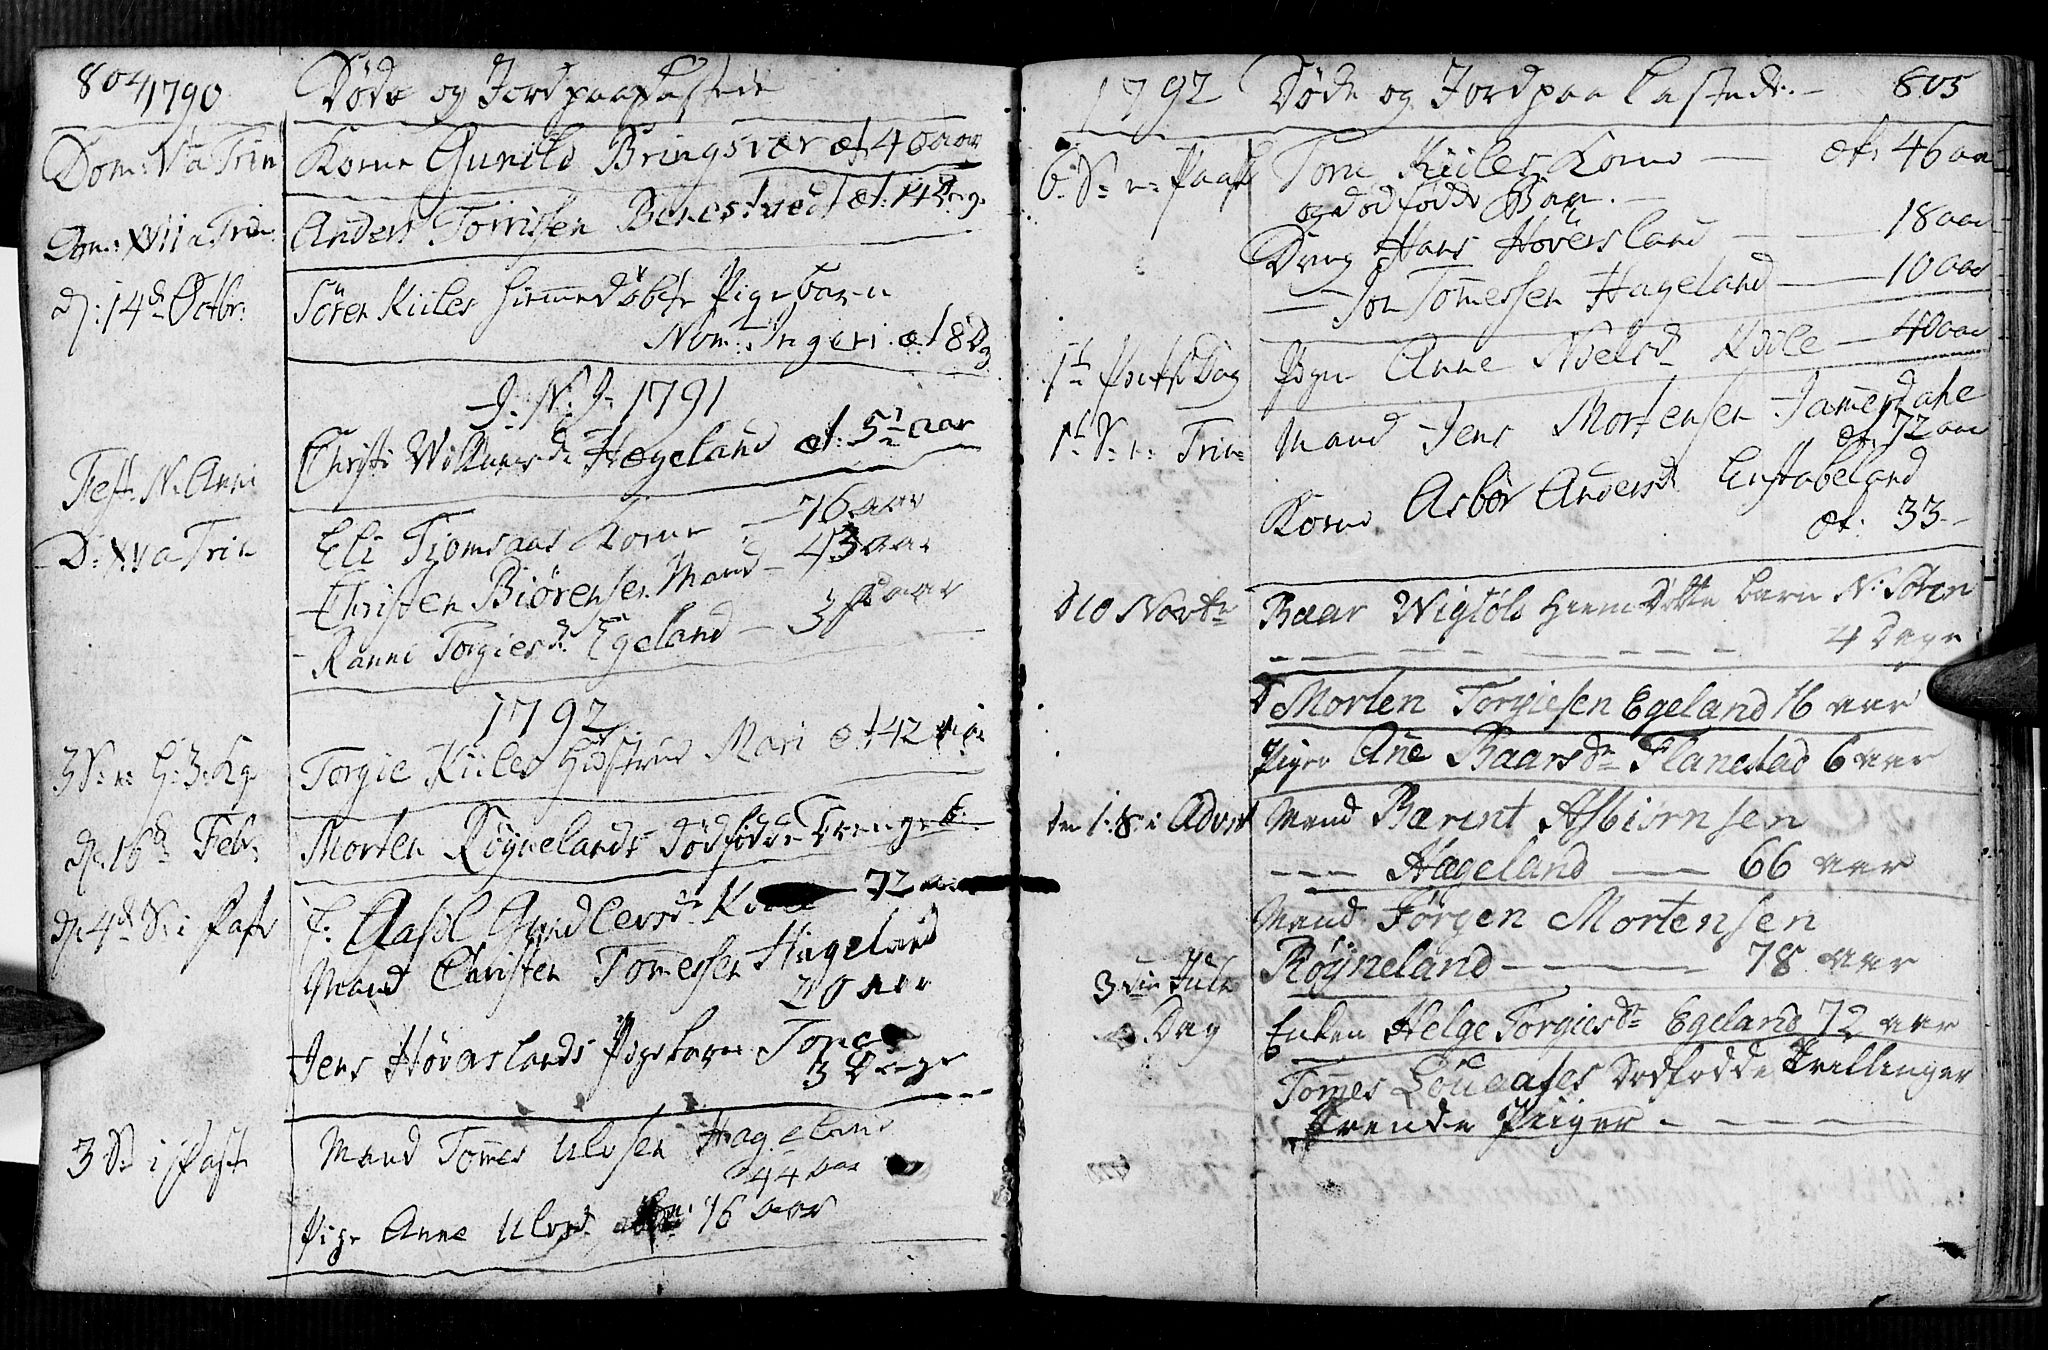 804 1790 Døde og Jord paa Kastede
Dom: V a Trin Kone Gunild Bringsvær æt 40 aar
Dom: XVII a Trin: Anders Torrisen Berestvedt æt: 14 Dag.
d: 14de Octbr: Sören Kiiles hiemmedøbte Pigebarn
Nom: Ingeri æt 8 Dg
J: N: J: 1791
Fest: N: Anni Christi Willumsd: Hægeland æt: 5½ aar
D: XV a Trin Eli Tiomsaas Kone 76 aar
Christen Biørensen Mand 43 aar
Ranni Torgiesd: Egeland 3 aar
1792
3 S: e: H: 3 Kg Torgie Kiiles Hustrue Mari æt 42
d: 16de Febr: Morten Røynelands dødfødde Drengeb:
d: 4de S: i Faste E: Aasil Gundlevsd: 72
Mand Christen Tomessen Hægeland
70 aar
Jens Høverslands Pigebarn Tone
3 Dage
3 S: i Faste Mand Tomes Ulvsen Hægeland
44 aar
Pige Anne Ulvsd: 16 aar
1792 Døde og Jord paa Castede 805
6: S: e: Paask Tore Kiiles Kone æt: 46 aar
og dødfødde Barn
Dreng Hans Høversland 18 aar
Jon Tomessen Hægeland 10 aar
1ste Pintse Dag Pige Anne Nielsd: Kiile 40 aar
1ste S: e: Trin: Mand Jens Mortensen Jamesdahl
æt. 72 aar
Kone Asbör Andersd: Enstabeland
æt: 33
d 10 Novbr Baar Wigtöls hiemdøbte barn N: Sören
4 Dage
Morten Torgiesen Egeland 16 aar
Pigen Ane Baarsdr Flanestad 6 aar
den 1: S: i Advent Mand Berent Asbiørnsen
Hægeland 66 aar
Mand Jörgen Mortensen
Röyneland 78 aar
3die Jule Dag Enken Helge Torgiesdr Egeland 72 aar
Tomes Löuaases Dødfødde Tvillinger
Tvende Piiger